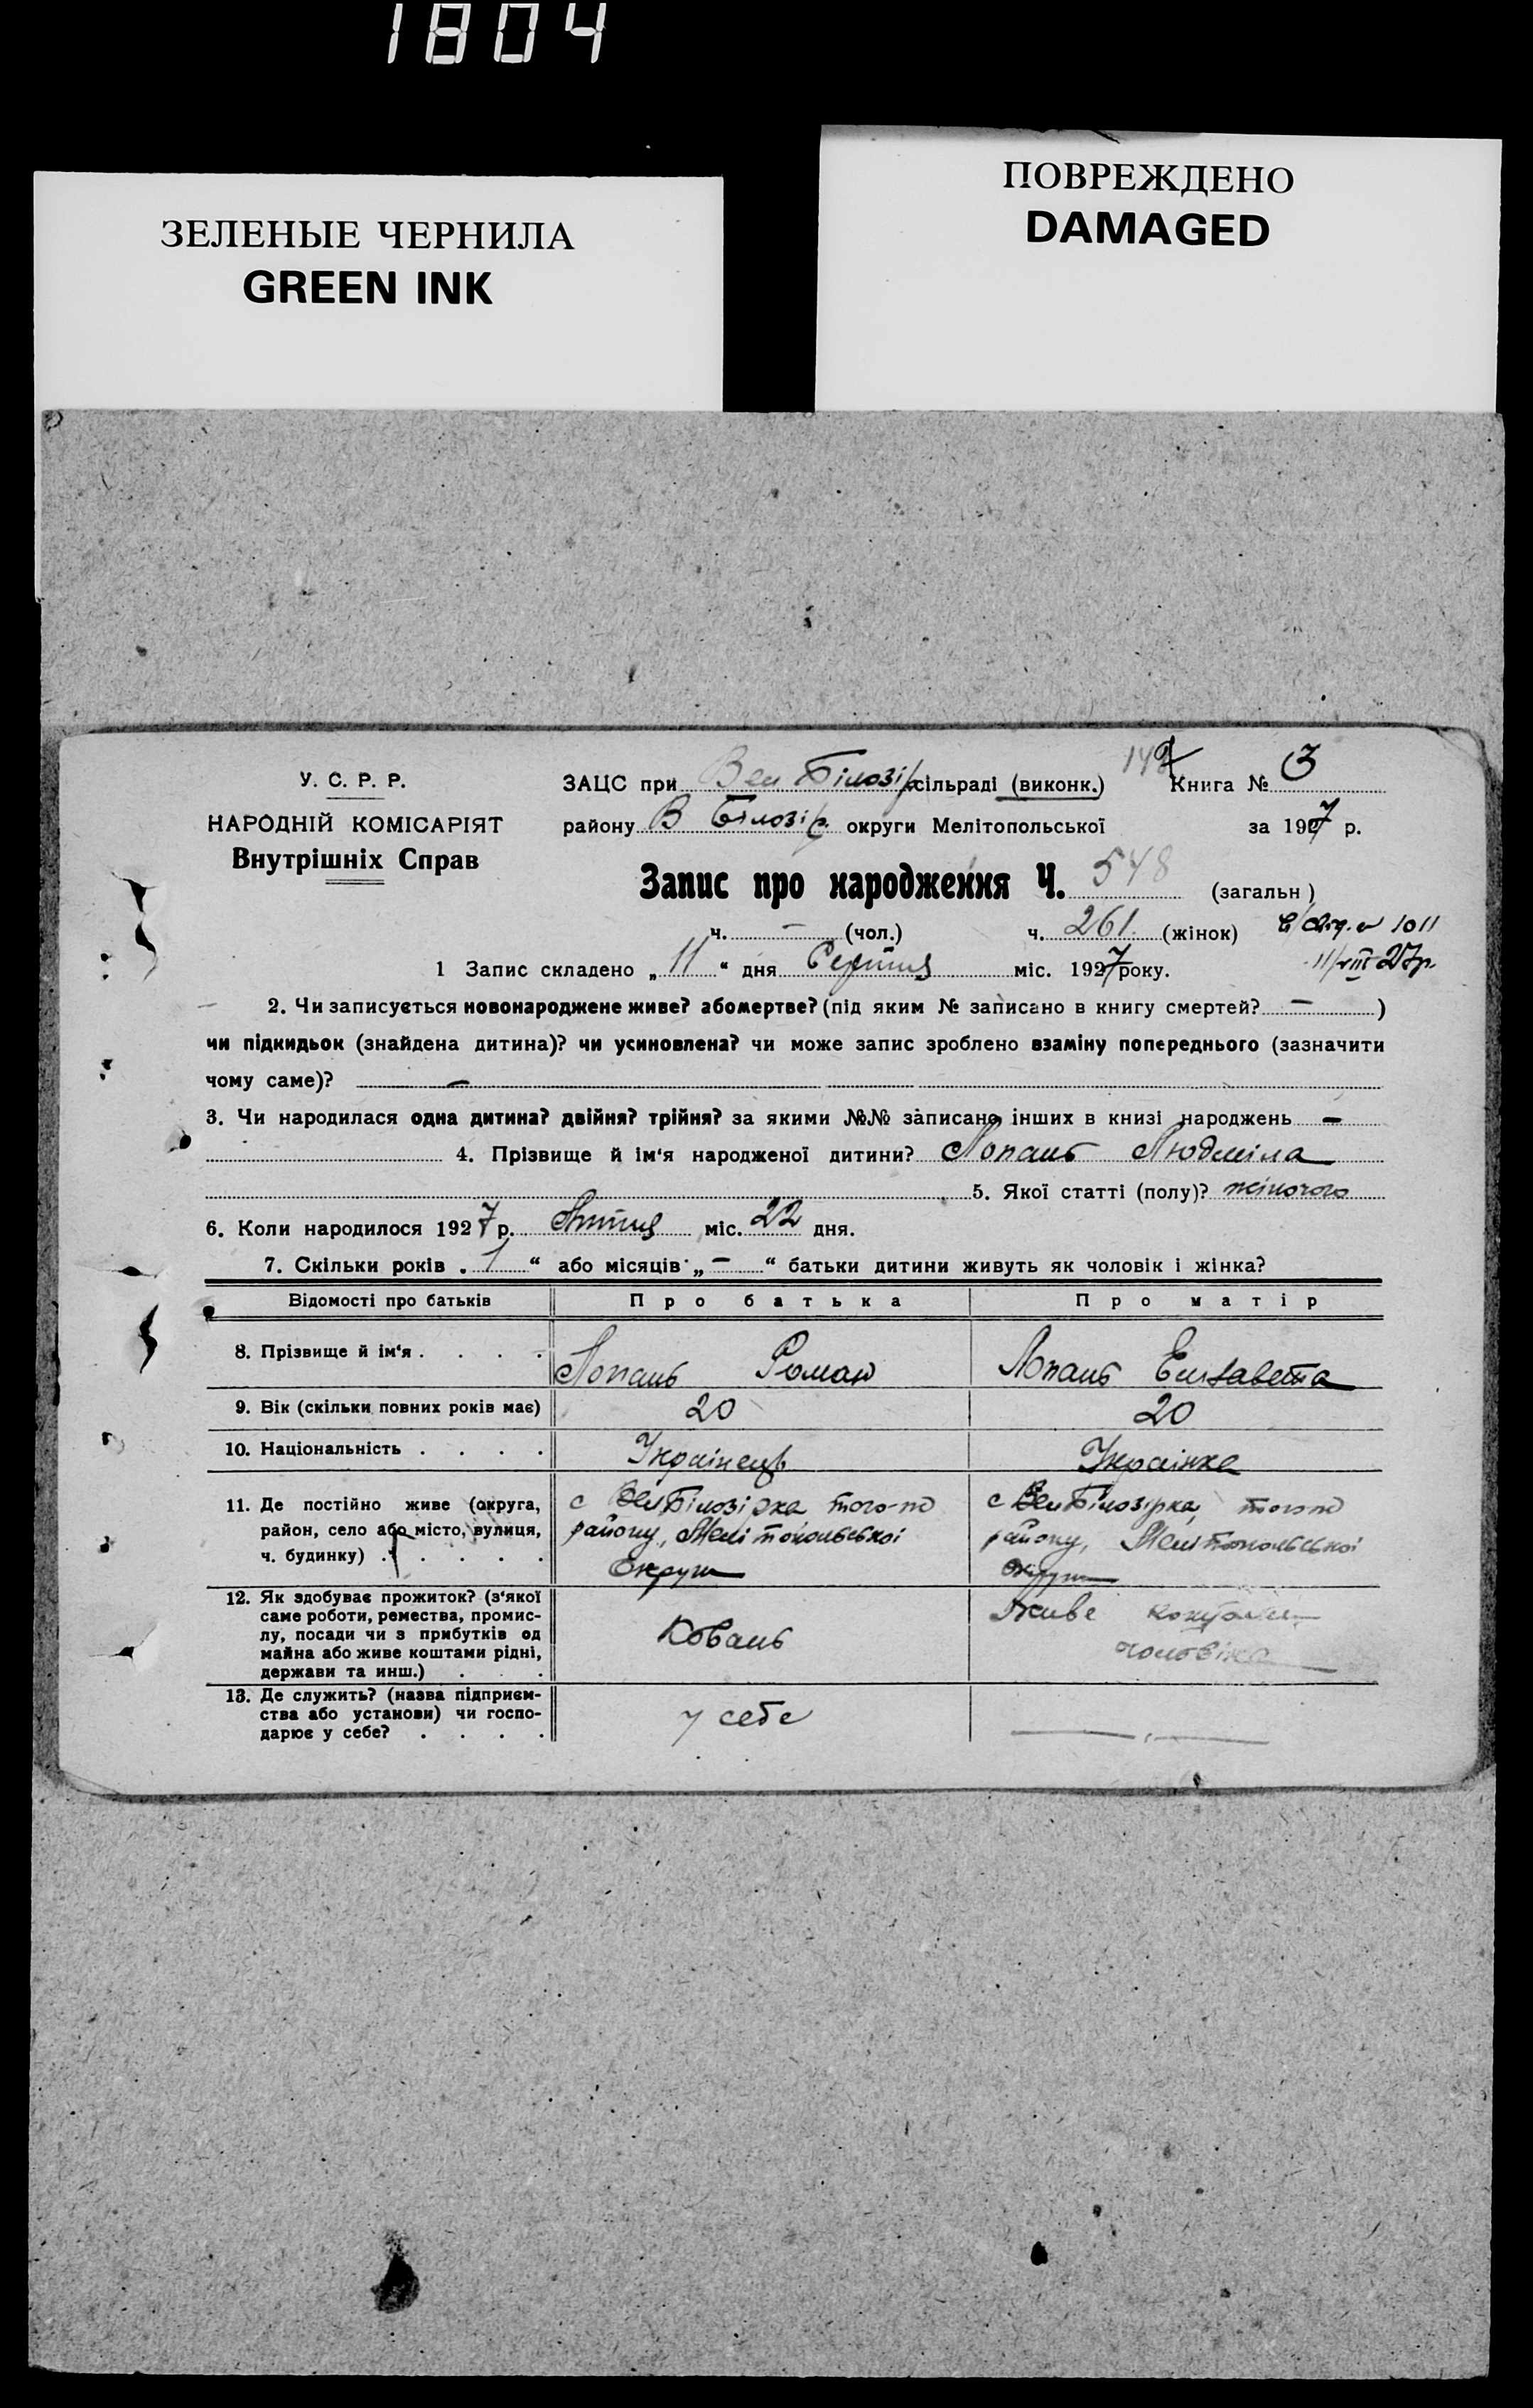 1804
ЗЕЛЕНЫЕ ЧЕРНИЛА
GREEN INK
ПОВРЕЖДЕНО
DAMAGED
У. С. Р. Р.
НАРОДНІЙ КОМІСАРІЯТ
Внутрішніх Справ
ЗАЦС при Вел Білозір сільраді (виконк.) Книга № 3
району В Білозір округи Мелітопольської за 1927 р.
Запис про народження Ч. 548 (загальн)
ч. — (чол.) ч. 261 (жінок) 1011
11/VIII 27р.
1 Запис складено „11“ дня Серпня міс. 1927 року.
2. Чи записується новонароджене живе? або мертве? (під яким № записано в книгу смертей? — )
чи підкидьок (знайдена дитина)? чи усиновлена? чи може запис зроблено взаміну попереднього (зазначити
чому саме)? —
3. Чи народилася одна дитина? двійня? трійня? за якими №№ записано інших в книзі народжень —
4. Прізвище й ім'я народженої дитини? Лопань Людміла
5. Якої статті (полу)? жіночого
6. Коли народилося 1927 р. Липня міс. 22 дня.
7. Скільки років „1“ або місяців „—“ батьки дитини живуть як чоловік і жінка?
Відомості про батьків Про батька Про матір
8. Прізвище й ім'я . . . . Лопань Роман Лопань Елизавета
9. Вік (скільки повних років має) 20 20
10. Національність . . . . Українець Українка
11. Де постійно живе (округа, с Вел Білозірка того-ж с Вел Білозірка того ж
район, село або місто, вулиця, району, Мелітопольської району, Мелітопольської
ч. будинку) . . . . . Округи Округи
12. Як здобуває прожиток? (з'якої
саме роботи, ремества, промис- Живе
лу, посади чи з прибутків од Коваль
майна або живе коштами рідні, чоловіка
держави та инш.) . . .
13. Де служить? (назва підприєм-
ства або установи) чи госпо- у себе —„—
дарює у себе? . . . .